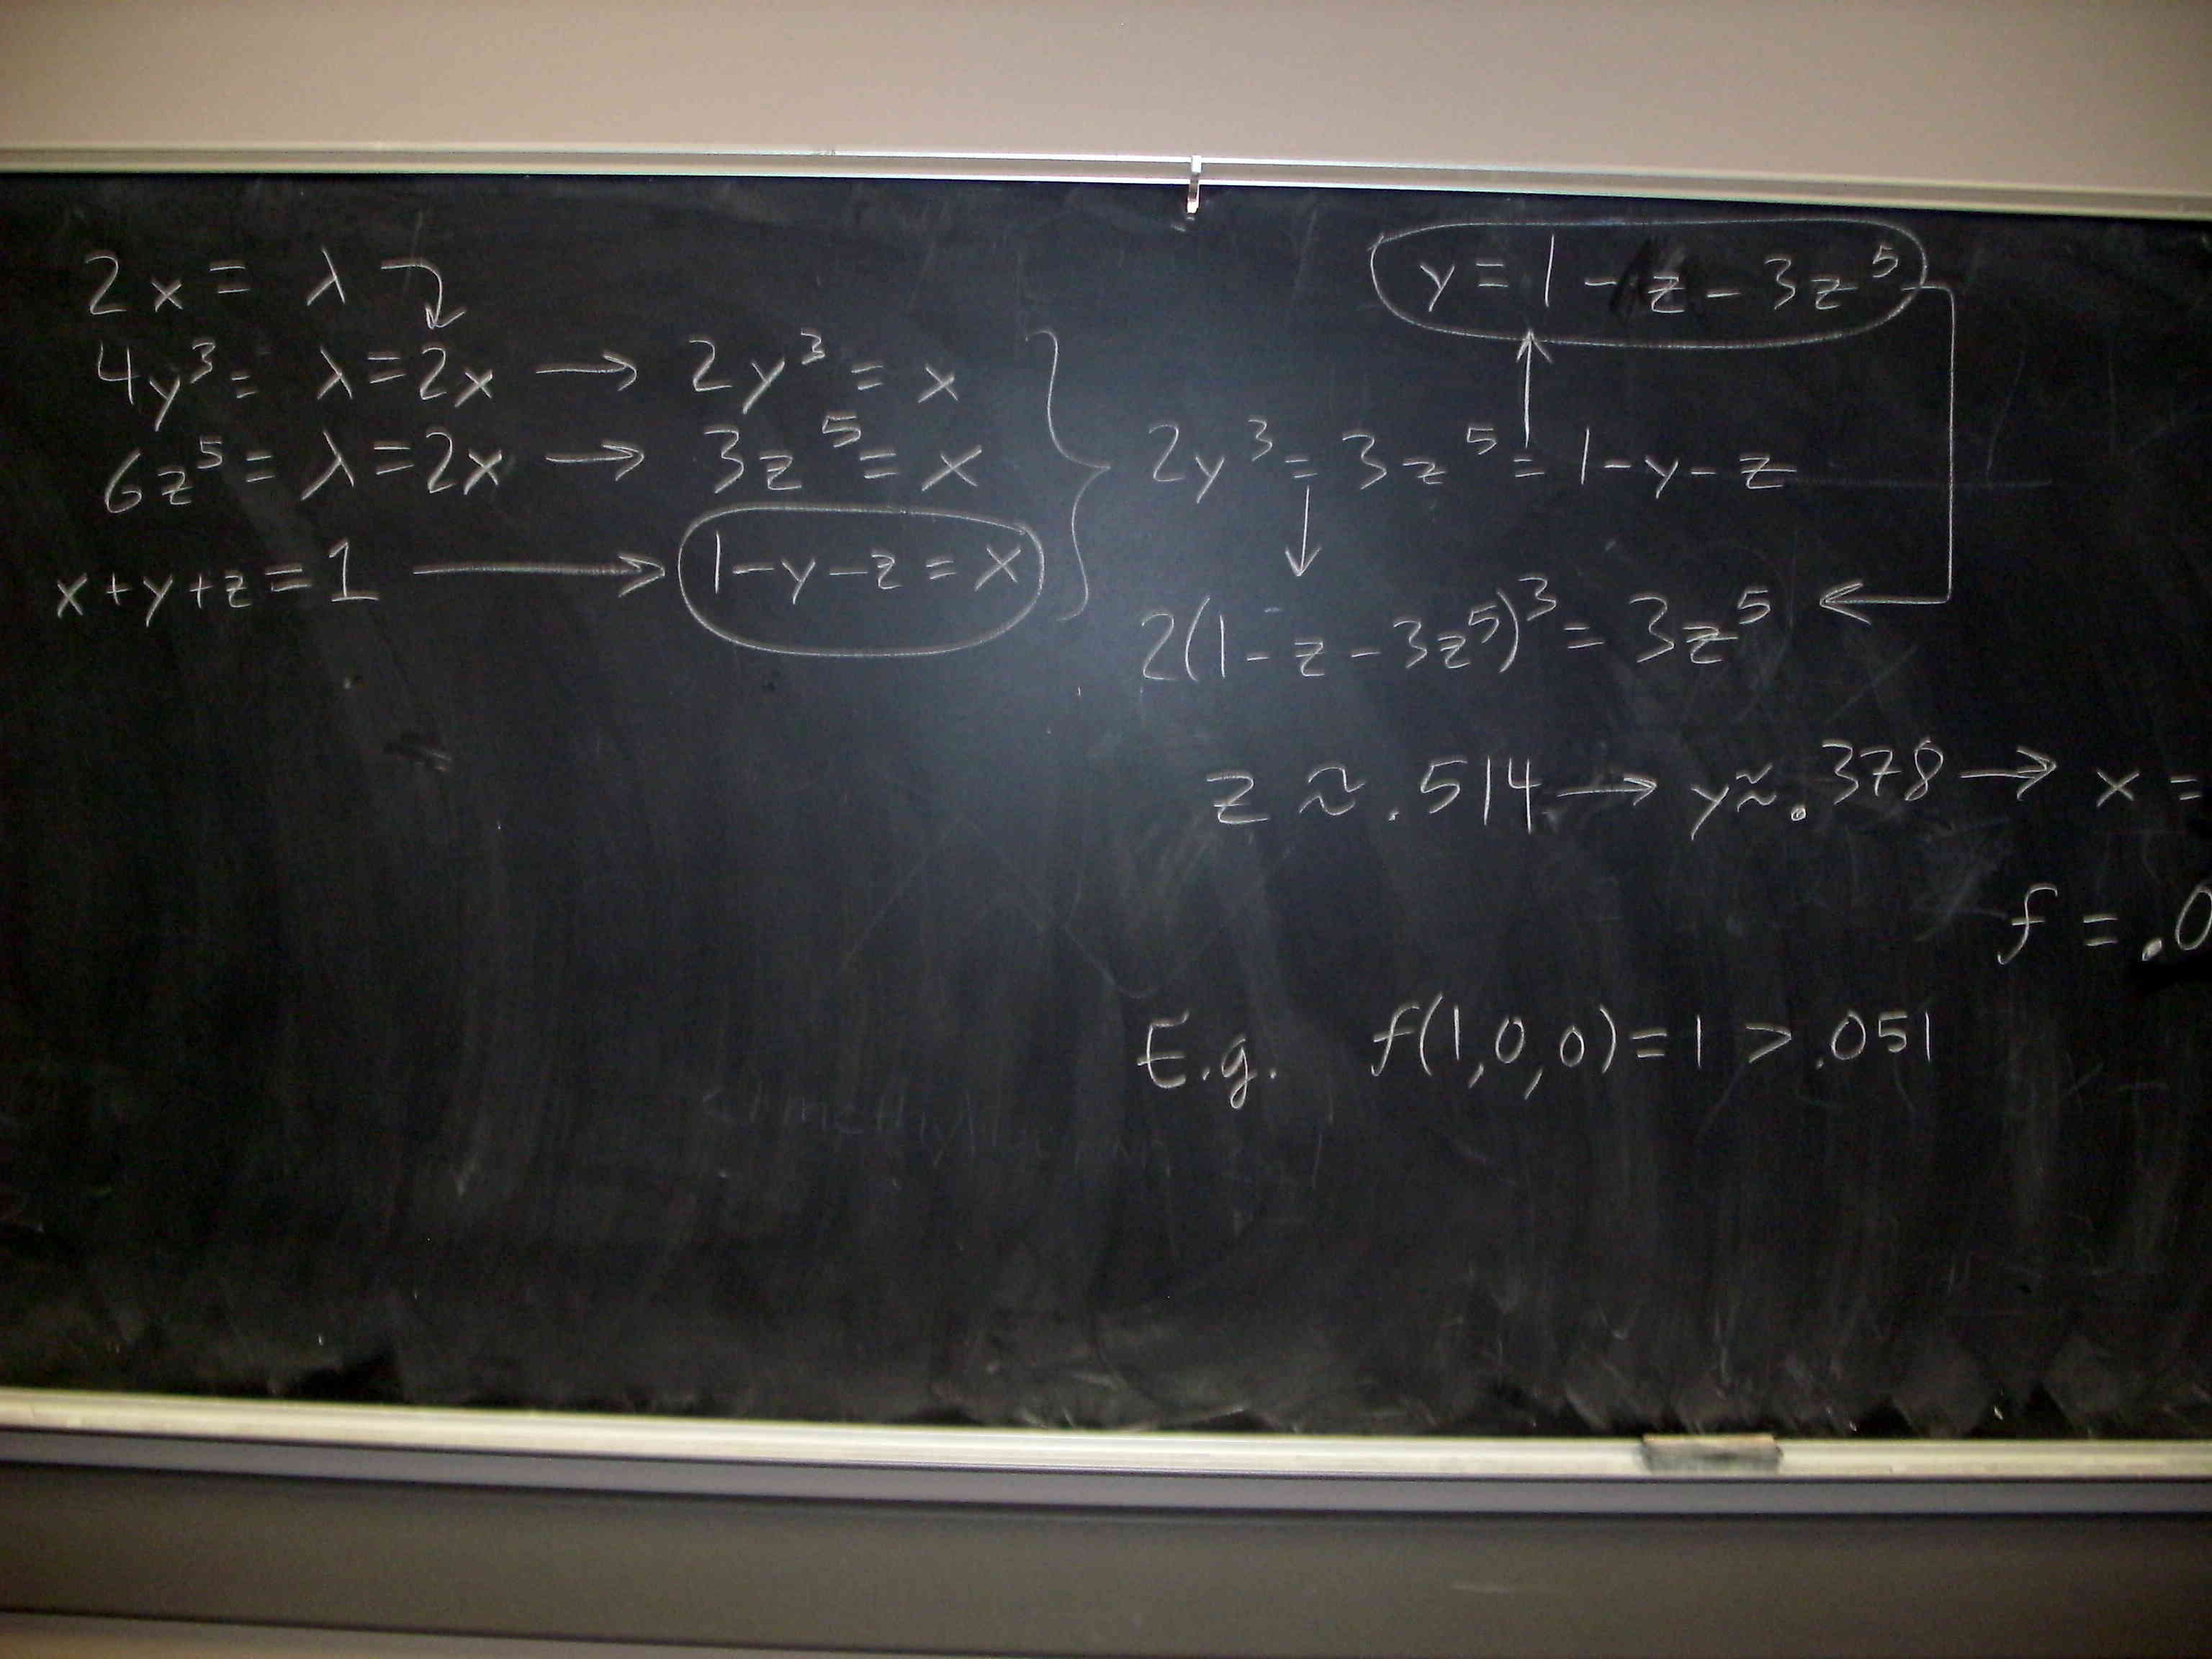 2x = λ
4y³ = λ = 2x → 2y³ = x
6z⁵ = λ = 2x → 3z⁵ = x
x + y + z = 1 → 1 - y - z = x
y = 1 - z - 3z⁵
2y³ = 3z⁵ = 1 - y - z
2(1 - z - 3z⁵)³ = 3z⁵
z ≈ .514 → y ≈ .378 → x =
f = .0
E.g. f(1,0,0) = 1 > .051